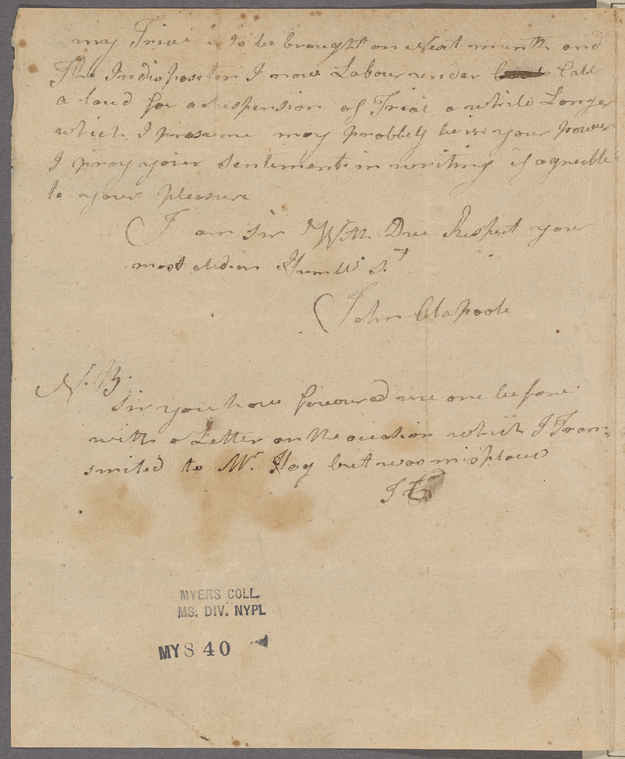 my Trial is to be brought on Next month and
The Indisposition I now Labour under Call
a loud for a suspension of Trial a while Longer
which I presume may probbly be in your power
I pray your sentement in writing if agreeble
to your pleasure
I am Sir With Due Respect your
most Humble St
John Clapoole
N.B.
Sir you have favoured me one before
with a Letter on the occation which I Tran=
smited to Mr. Hay but was misplaced
JC
MYERS COLL.
MS. DIV. NYPL
MY 8 40